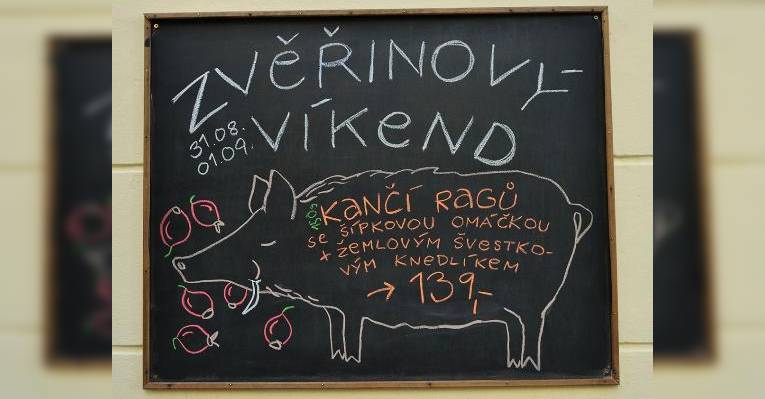 ZVĚŘINOVÝ
VÍKEND
31.08.
01.09.
150g KANČÍ RAGŮ
SE ŠÍPKOVOU OMÁČKOU
+ ŽEMLOVÝM ŠVESTKO-
VÝM KNEDLÍKEM
→ 139,-